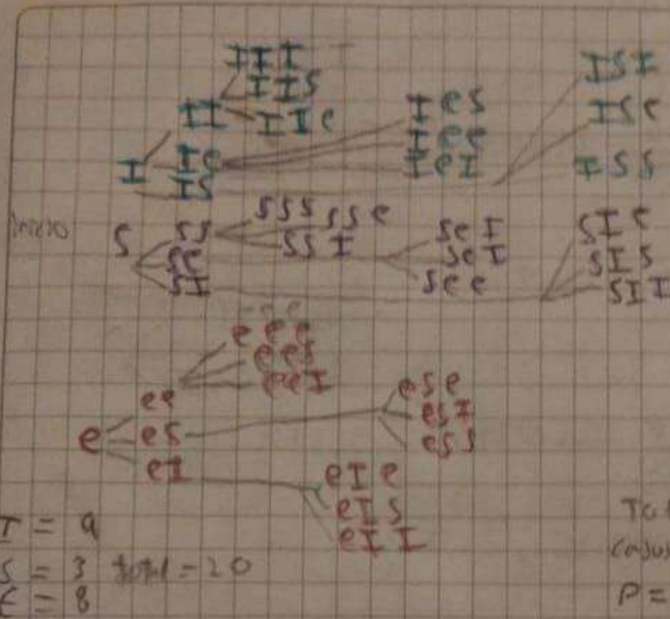 I I I
I I S
I I e
I I
I
I e
I S
I e S
I e e
I e I
I S I
I S e
I S S
inicio
S
S S
S e
S I
S S S
S S e
S S I
S e I
S e I
S e e
S I e
S I S
S I I
e
e e
e S
e I
e e e
e e S
e e I
e S e
e S I
e S S
e I e
e I S
e I I
I = 9
S = 3 total = 20
E = 8
casos
P =